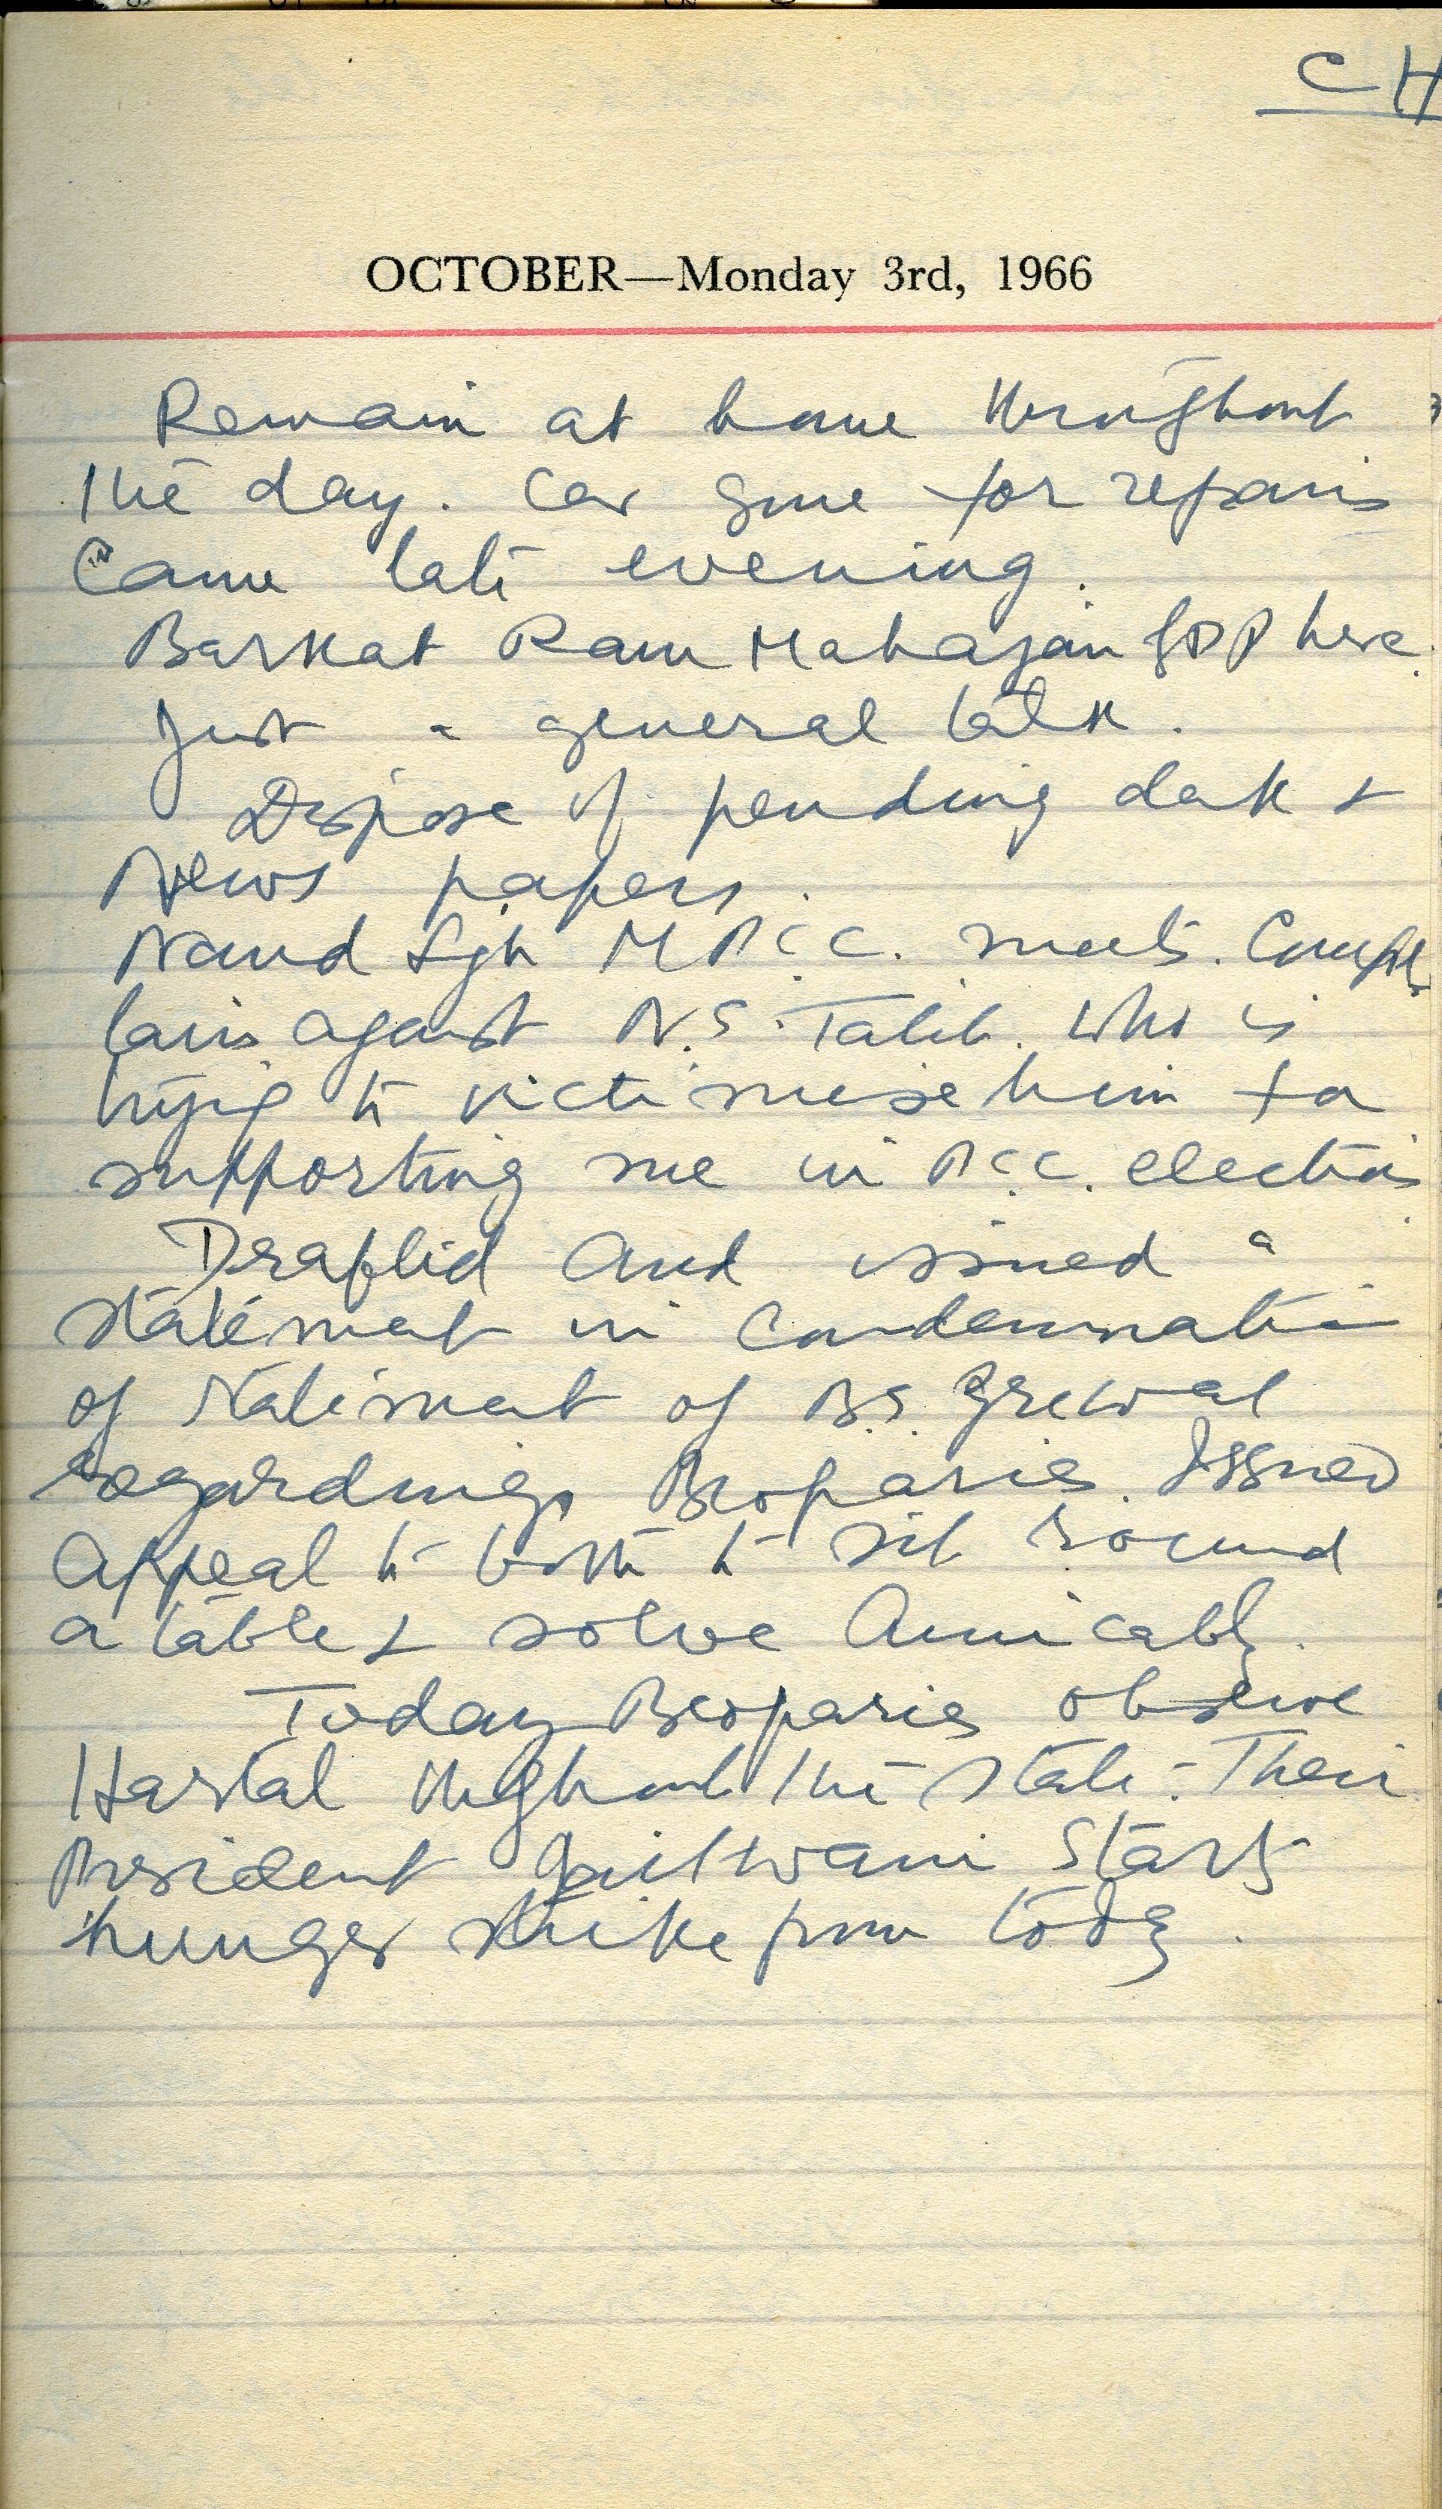 CH
OCTOBER—Monday 3rd, 1966
Remain at home throughout
the day. Car gone for repairs
Came late evening.
Barkat Ram Mahajan here.
Just a general talk.
Dispose of pending dak &
News papers.
Nand Sgh M P.C.C. meets. Comp
lains against N.S. Talib. Who is
trying to victimise him for
supporting me in P.C.C. election
Drafted and issued a
statement in condemnation
of statement of B.S. Grewal
regarding Beoparies. Issued
Appeal to both to sit round
a table & solve Amicably.
Today Beoparies observe
Hartal thghout the state. Their
President starts
hunger strike from today.